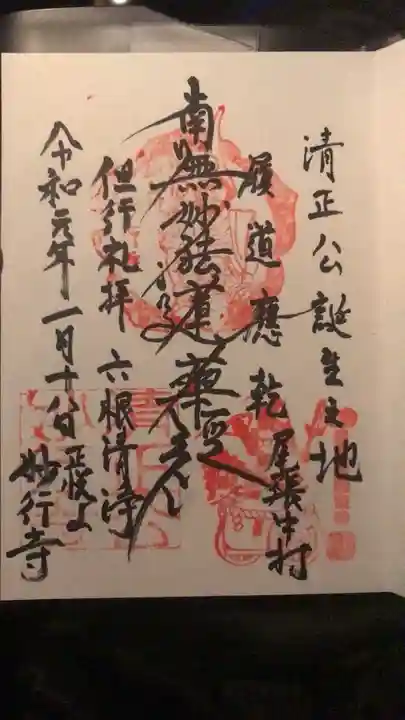 清正公誕生之地
履道應乾
尾張中村
南無妙法蓮華経
但行礼拝 六根清浄
令和元年一月十日
妙行寺